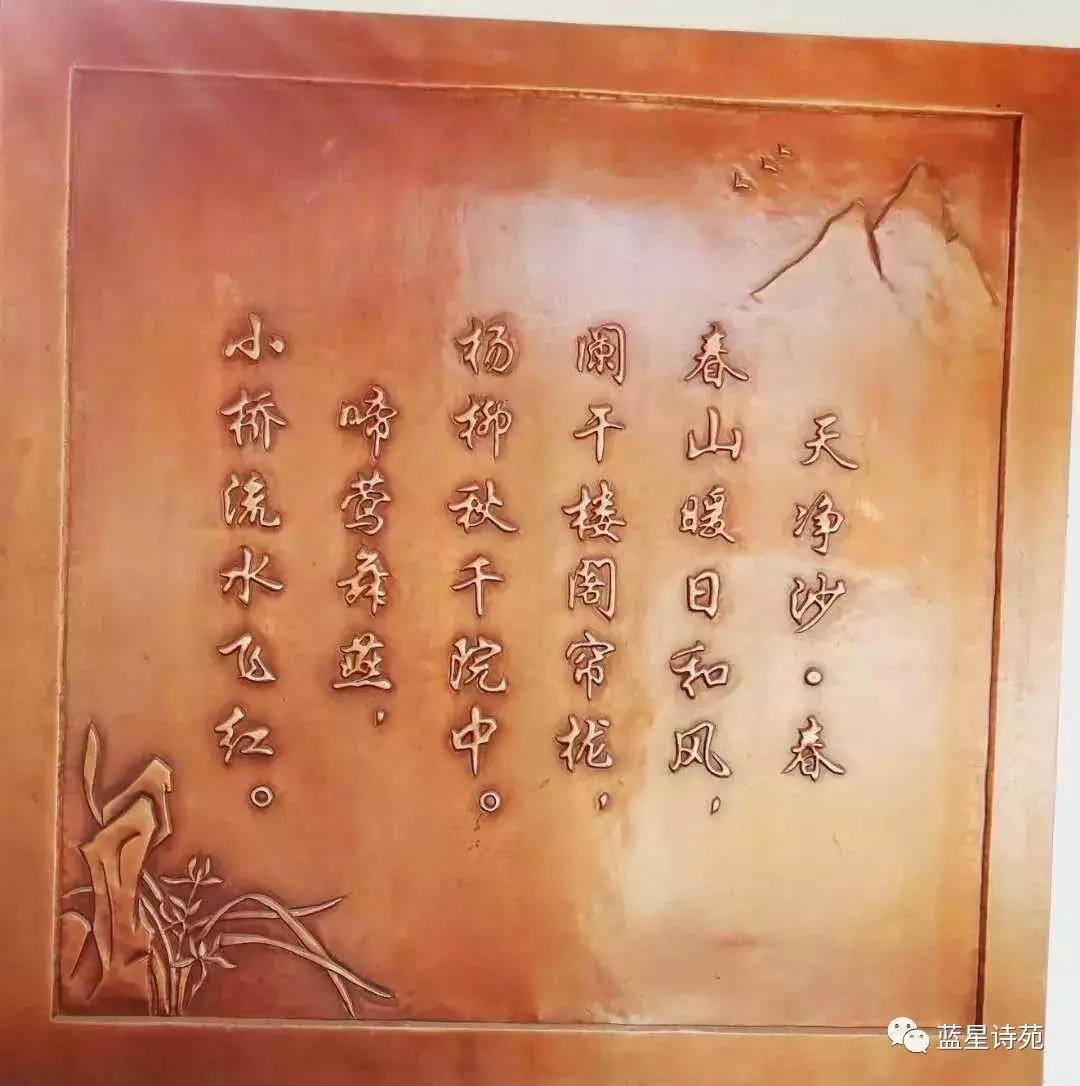 天净沙·春
春山暖日和风，
阑干楼阁帘栊，
杨柳秋千院中。
啼莺舞燕，
小桥流水飞红。
蓝星诗苑